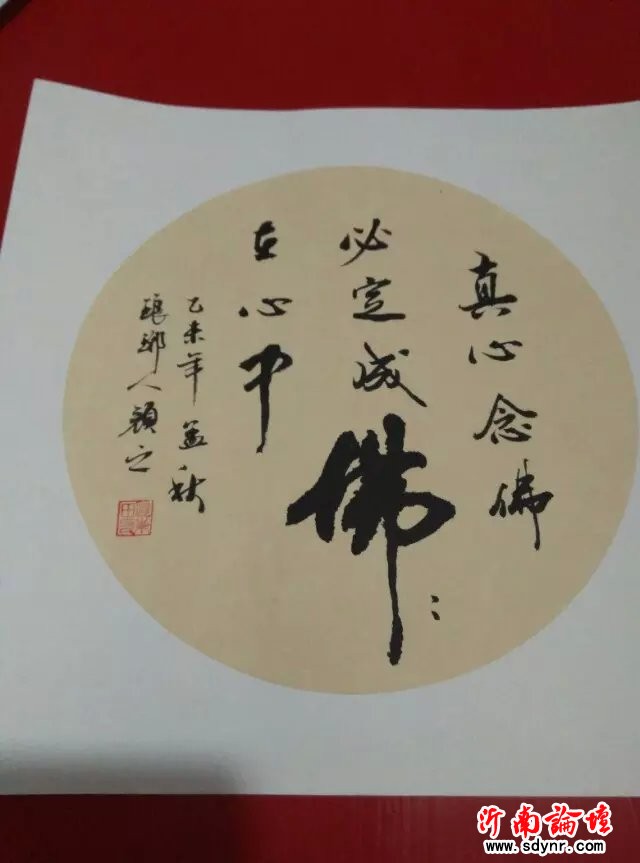 真心念佛
必定成佛〻
在心中
乙未年孟秋
琅琊人颖之
沂南論壇
www.sdynr.com